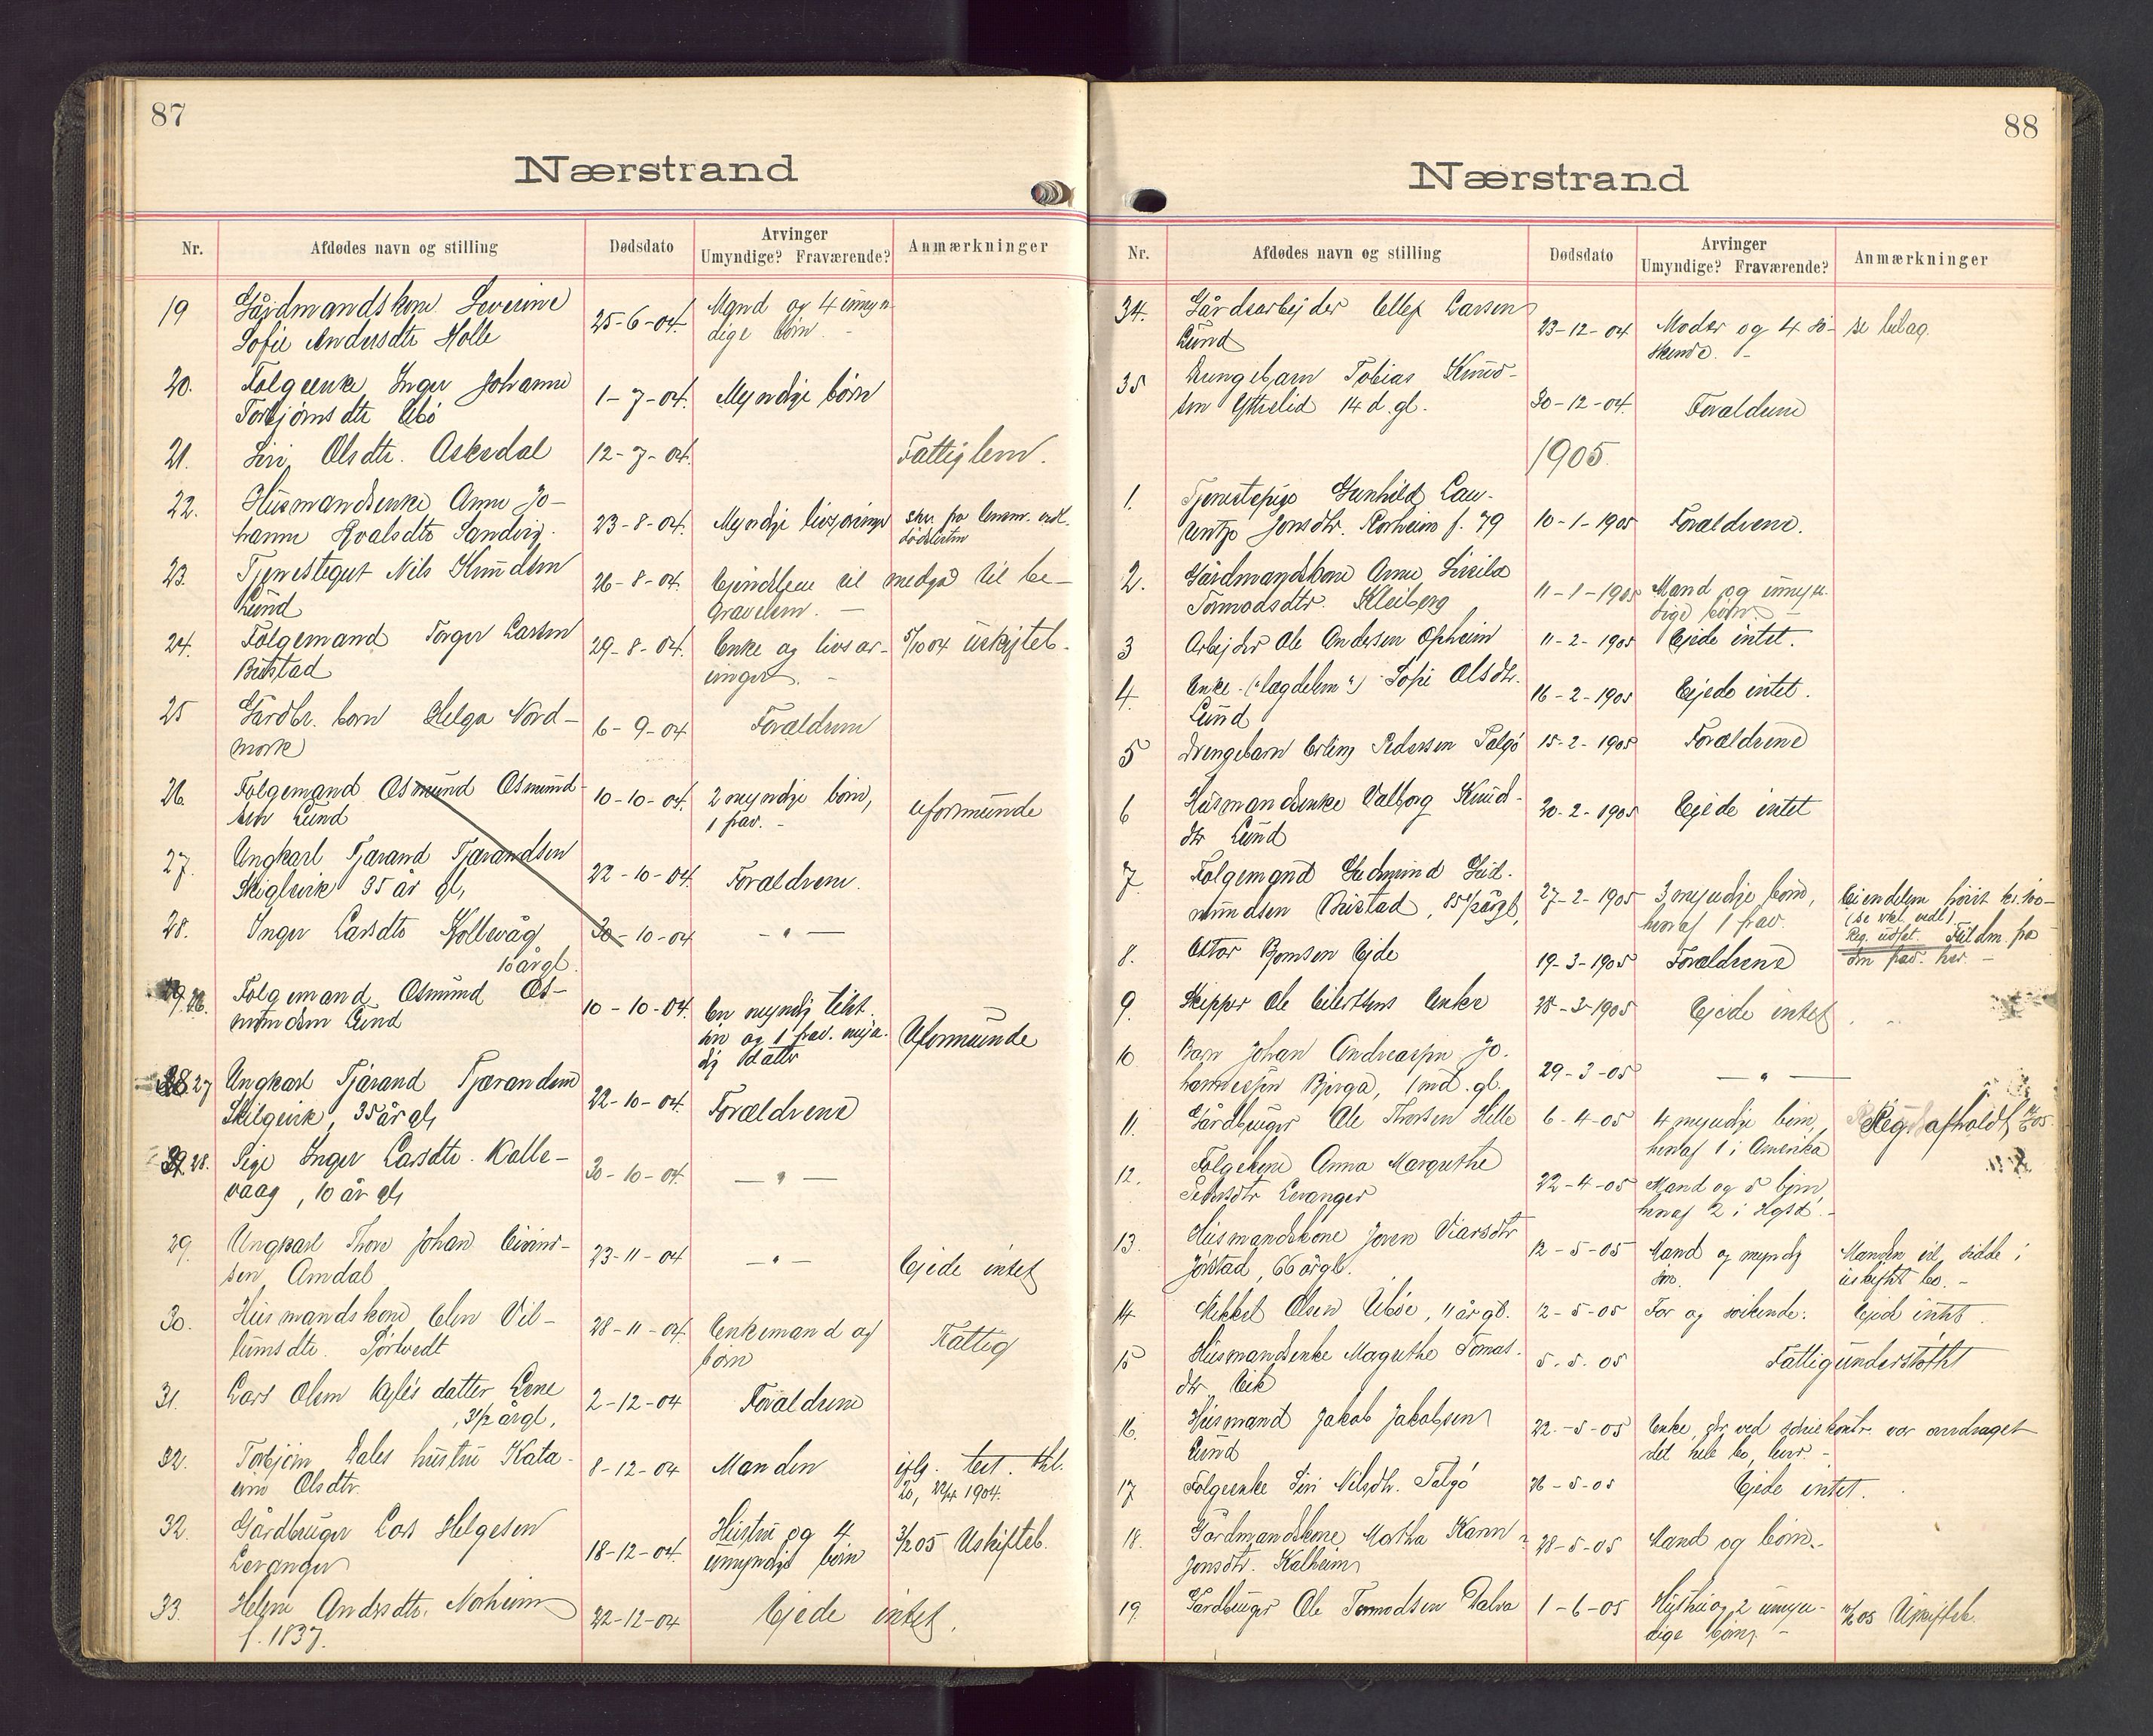 87
Nærstrand
Nr. Afdødes navn og stilling Dødsdato Arvinger Umyndige? Fraværende? Anmærkninger
19 Gårdmandskone Severine 25-6-04. Mand og 4 umyn-
Sofie Andersdtr Holle dige børn.
20. Følgeenke Inger Johanne 1-7-04. Myndige børn
Torbjørnsdtr Ubø
21. Siri Olsdtr. Aksdal 12-7-04. Fattiglem.
22. Husmandsenke Anne Jo- 23-8-04. Myndige livsarvinger
hanne Sandvig.
23. Tjenestegut Nils Knudsen 26-8-04. Eiendelene vil medgå til be-
Lund gravelsen. —
24. Følgemand Torger Larsen 29-8-04. Enke og livsar- 5/10 04 uskifteb.
Bustad vinger. -
25 Gårdbr. barn Helga Nord- 6-9-04 Forældrene
mork
26. Følgemand Osmund Osmund- 10-10-04. 2 myndige børn, uformuende
sen Lund 1 frav. -
27. Ungkarl Tjærand Tjærandsen 22-10-04. Forældrene.
35 år gl,
28. Inger Larsdtr Kollevåg 30-10-04 — " —
10 år gl.
26. Følgemand Osmund Os- 10-10-04. En myndig
mundsen Lund og 1 frav. myn- Uformuende
dig datter
27 Ungkarl Tjærand Tjærandsen 22-10-04. Forældrene
35 år gl,
28. Pige Inger Larsdtr. Kolle- 30-10-04. — " —
vaag, 10 år gl,
29. Ungkarl Thore Johan Eivind- 23-11-04 — " — Eiede intet
sen Amdal
30. Husmandskone Elen Vil- 28-11-04. Enkemand og Fattig
lumsdtr. Sørtvedt børn
31. Lars Olsen datter Lene 2-12-04 Forældrene
, 3 1/2 år gl,
32. Torbjørn Dales hustru Kata- 8-12-04 Manden iflg. test. thl.
rine Olsdtr. 1904.
32. Gårdbruger Lars Helgesen 18-12-04. Hustru og 4 3/2 05 Uskifteb.
Levanger umyndige børn
33. Helene Andrsdtr. Norheim 22-12-04 Eiede intet.
f. 1837.
88
Nærstrand
Nr. Afdødes navn og stilling Dødsdato Arvinger Umyndige? Fraværende? Anmærkninger
34. Gårdsarbejder Ellef Larsen 23-12-04 Moder og 4 sø- se bilag.
Lund skende. -
35 Drengebarn Tobias Knud- 30-12-04. Forældrene
sen Ytrelid 14 d. gl.
1905.
1. Tjenestepige Gunhild Lau- 10-1-1905 Forældrene.
rentze Jonsdtr. f. 79
2. Gårdmandskone Anne Sissila 11-1-1905 Mand og umyn-
Tormodsdtr. Kleiberg dige børn. -
3 Arbejder Ole Andersen Opheim 11-2-1905 Ejede intet.
4. Enke ("lægdelem") Sofie Olsdtr. 16-2-1905 Ejede intet.
Lund
5 Drengebarn Erling Pedersen Talgø 15-2-1905 Forældrene
6 Husmandsenke Valborg Knud- 20-2-1905 Ejede intet
dtr Lund
7 Følgemand Gudmund Gud- 27-2-1905 3 myndige børn,
mundsen Bustad, 85 1/2 år gl, heraf 1 frav.
8. Ejde 19-3-1905 Forældrene
9. Skipper Ole Eilertsens Enke 28-3-1905 Ejede intet
10 Barn Johan Andreassen Jo- 29-3-05 — " —
hannessen Bjerga, 1 md. gl.
11. Gårdbruger Ole Thorsen Helle 6-4-05 4 myndige børn, Reg. afholdt
heraf 1 i Amerika
12. Følgekone Anna Margrethe 22-4-05 Mand og 5 børn,
Levanger heraf 2 i
13. Husmandskone Joren Viarsdtr 12-5-05 Mand og myndig Manden vil sidde i
Jørstad, 66 år gl. søn. uskiftet bo. -
14 Mikkel Olsen Ubøe, 11 år gl. 2-5-05 Far og søskende. Ejed intet.
15 Husmandsenke Magrethe Tomas- 5.5.05 Fattigunderstøttet
dtr Eik
16. Husmand Jakob Jakobsen 22-5-05 Enke, der ved var andraget
Lund det hele bo,
17. Følgeenke Siri Nilsdtr. Talgø 26-5-05 Ejede intet.
18. Gårdmandskone Martha Karin 28-5-05 Mand og børn.-
Jonsdtr. Kalheim
19. Gårdbruger Ole Tormodsen Dalva 1-6-05 Hustru og 2 umyn- Uskifteb.
dige børn. -